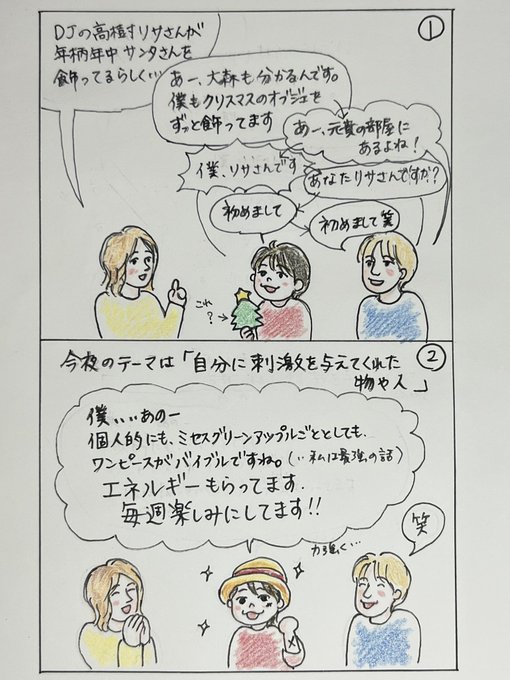 ①
DJの高樹リサさんが
年柄年中サンタさんを
飾ってるらしく…
あー、大森も分かるんです。
僕もクリスマスのオブジェを
ずっと飾ってます
あー、元貴の部屋に
あるよね!
僕、リサさんです
あなたリサさんですか?
初めまして
初めまして笑
これ
?
②
今夜のテーマは「自分に刺激を与えてくれた
物や人」
僕、、、あのー
個人的にも、ミセスグリーンアップルごととしても、
ワンピースがバイブルですね。(…私は最強の話)
エネルギーもらってます。
毎週楽しみにしてます!!
力強く…
笑